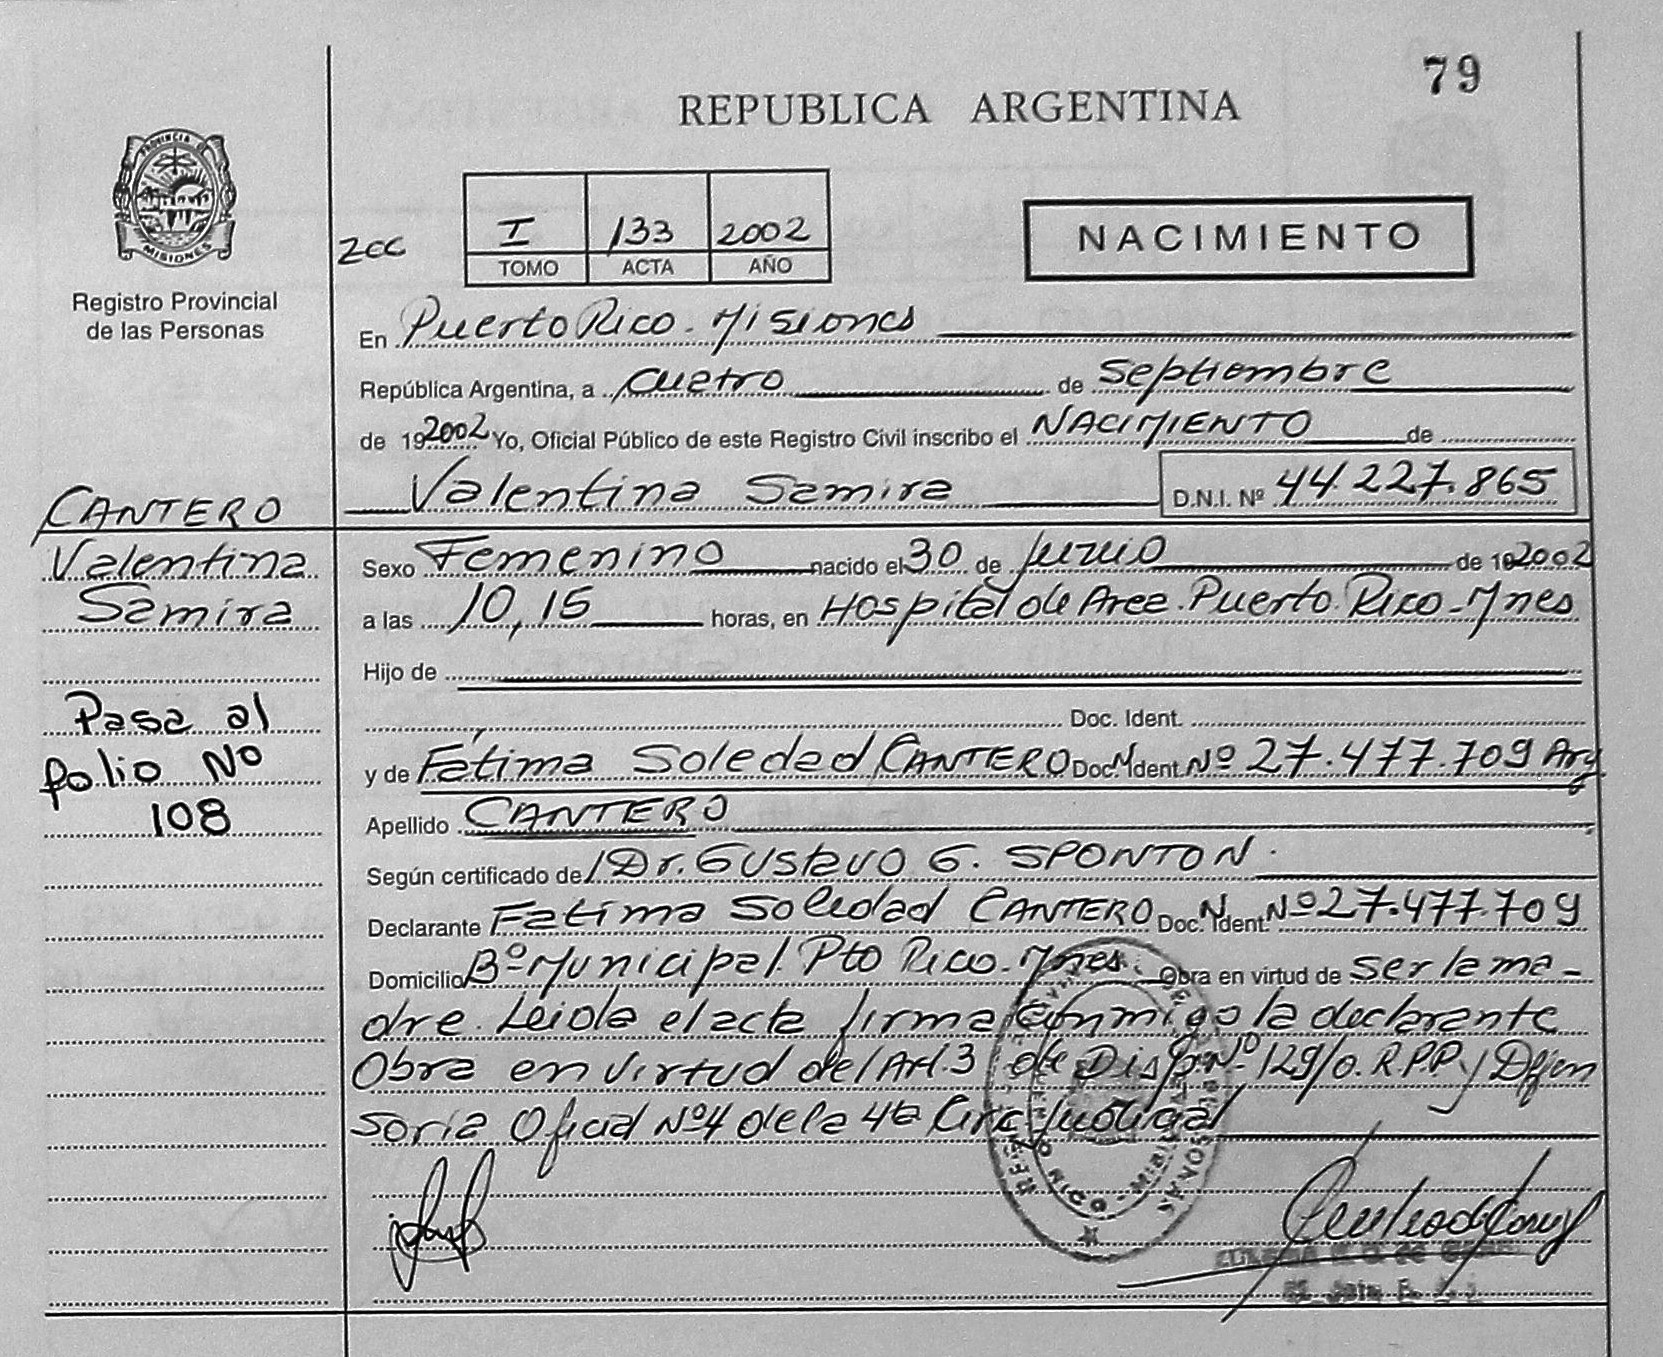 79
REPUBLICA ARGENTINA
PROVINCIA DE
MISIONES
Registro Provincial
de las Personas
2CC
I 133 2002
TOMO ACTA AÑO
NACIMIENTO
En Puerto Rico. Misiones
República Argentina, a cuatro de Septiembre
de 192002 Yo, Oficial Público de este Registro Civil inscribo el NACIMIENTO de
Valentina Samira D.N.I. Nº 44.227.865
CANTERO
Valentina
Samira
Pasa al
folio Nº
108
Sexo Femenino nacido el 30 de Junio de 192002
a las 10,15 horas, en Hospital de Area. Puerto Rico - Mnes
Hijo de
Doc. Ident.
y de Fátima Soledad CANTERO Doc. Ident. Nº 27.477.709 Arg
Apellido CANTERO
Según certificado de Dr. Gustavo G. SPONTON.
Declarante Fatima Soledad CANTERO Doc. Ident. Nº 27.477.709
Domicilio Bº Municipal. Pto Rico - Mnes. Obra en virtud de ser la ma-
dre. Leida el acta firma conmigo la declarante
Obra en virtud del Art. 3 de Disp. Nº 129/0. R.P.P y Defen
soria Oficial Nº 4 de la 4ta Circ Judicial